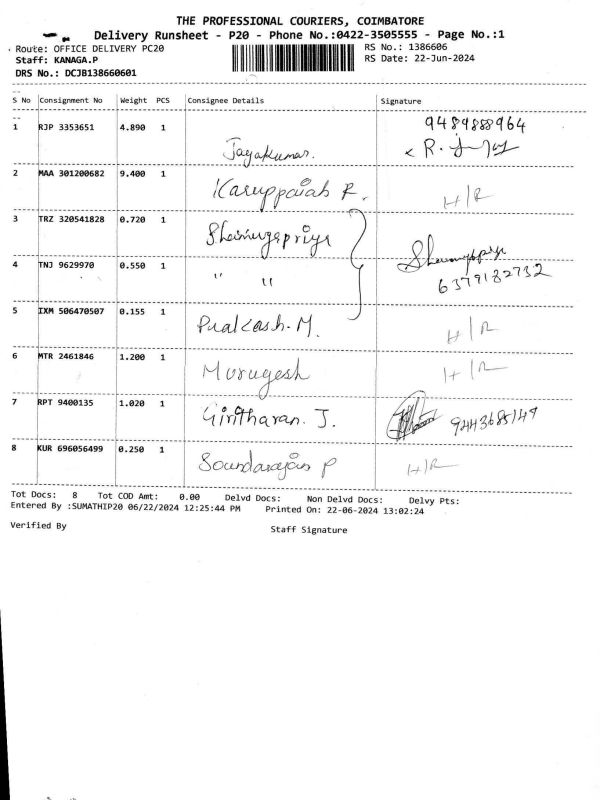 THE PROFESSIONAL COURIERS, COIMBATORE
Delivery Runsheet - P20 - Phone No.:0422-3505555 - Page No.:1
Route: OFFICE DELIVERY PC20 RS No.: 1386606
Staff: KANAGA.P RS Date: 22-Jun-2024
DRS No.: DCJB138660601
S No Consignment No Weight PCS Consignee Details Signature
9489888964
1 RJP 3353651 4.890 1
Jayakumar.
2 MAA 301200682 9.400 1 Karuppaiah R. H/R
3 TRZ 320541828 0.720 1 Shanmugapriya
4 TNJ 9629970 0.550 1 " " Shanmugapriya
6379182732
5 IXM 506470507 0.155 1
Prakash. M. H/R
6 MTR 2461846 1.200 1
Murugesh H/R
7 RPT 9400135 1.020 1 Giritharan. J. 9443685149
8 KUR 696056499 0.250 1
Soundarajan P H/R
Tot Docs: 8 Tot COD Amt: 0.00 Delvd Docs: Non Delvd Docs: Delvy Pts:
Entered By :SUMATHIP20 06/22/2024 12:25:44 PM Printed On: 22-06-2024 13:02:24
Verified By Staff Signature